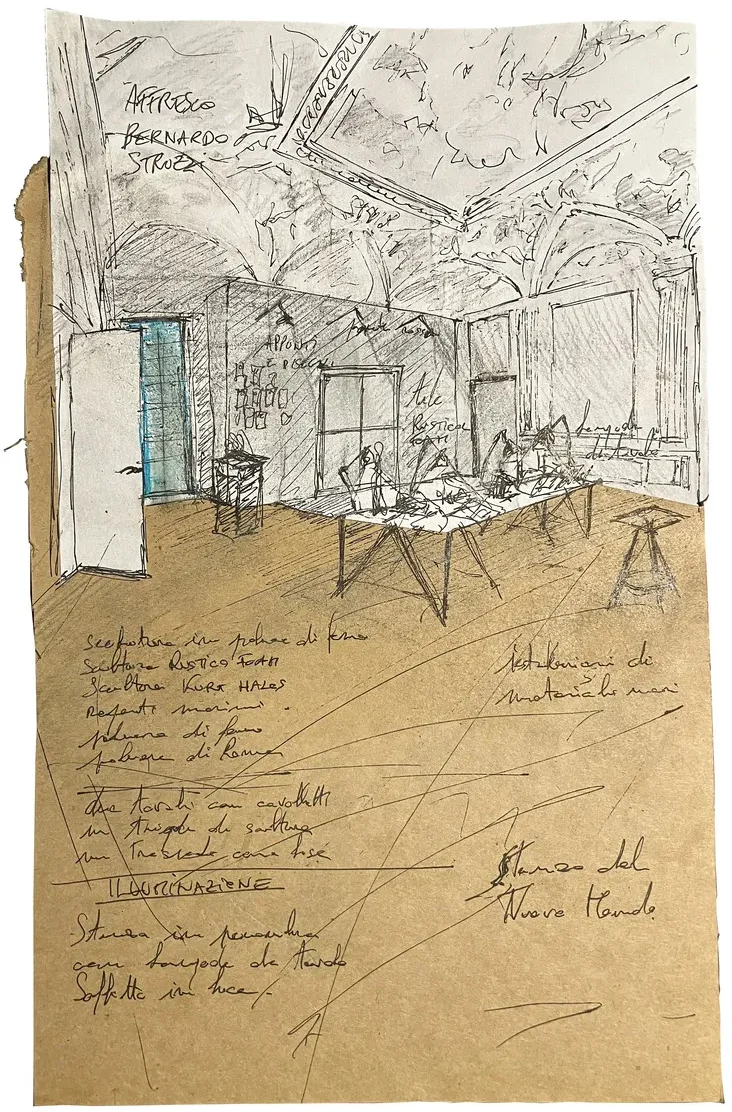 AFFRESCO
BERNARDO
STROZZI
APPUNTI
E DISEGNI
Tele
RUSTICO
FOAM
lampade
da tavolo
scultura in polvere di ferro
scultura RUSTICO FOAM
Scultura KURT HALES
Reperti marini.
polvere di ferro
polvere di Rame
due tavoli con cavalletti
un trespolo da scultura
un trespolo come base
ILLUMINAZIONE
Stanza in penombra
con lampade da tavolo
Soffitto in luce.
istallazioni di
materiale
Stanza del
Nuovo Mondo